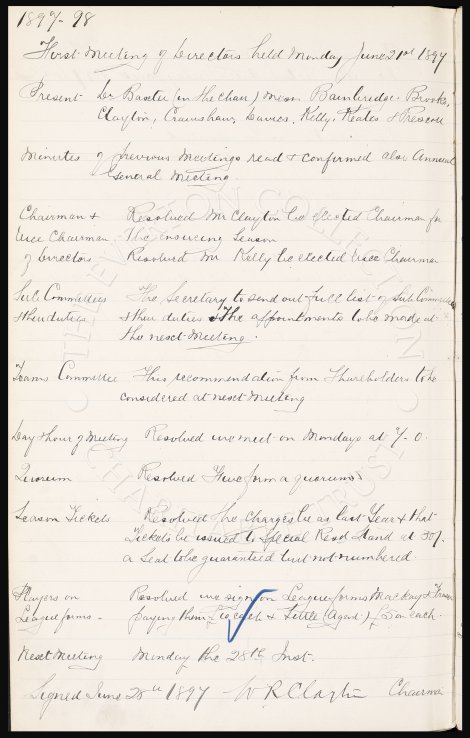 1897-98
First Meeting of Directors held Monday June 21st 1897
Present Dr Baxter (in the chair) Mess. Bainbridge, Brooks,
Clayton, Crawshaw, Davies, Kelly, Keates & Prescott
Minutes of previous Meetings read & confirmed also Annual
General Meeting.
Chairman & Resolved Mr Clayton be elected Chairman for
Vice Chairman the ensuing Season
of Directors Resolved Mr Kelly be elected Vice Chairman
Sub Committees The Secretary to send out full list of Sub Committees
& their duties & their duties & the appointments to be made at
the next Meeting.
Teams Committee This recommendation from Shareholders to be
considered at next Meeting
Day & hour of Meeting Resolved we meet on Mondays at 7-0.
Quorum Resolved Five form a quorum
Season Tickets Resolved the Charges be as last Year & that
Tickets be issued to Special Resd Stand at 30/-
a Seat to be guaranteed but not numbered.
Players on Resolved we sign on League forms Mackay &
League forms - paying them £10 each & Little (Agent) £5 on each.
Next Meeting Monday the 28th Inst.
Signed June 28th 1897 W R Clayton Chairman
CELEVATION COLLECTION
CHARITABLE TRUST